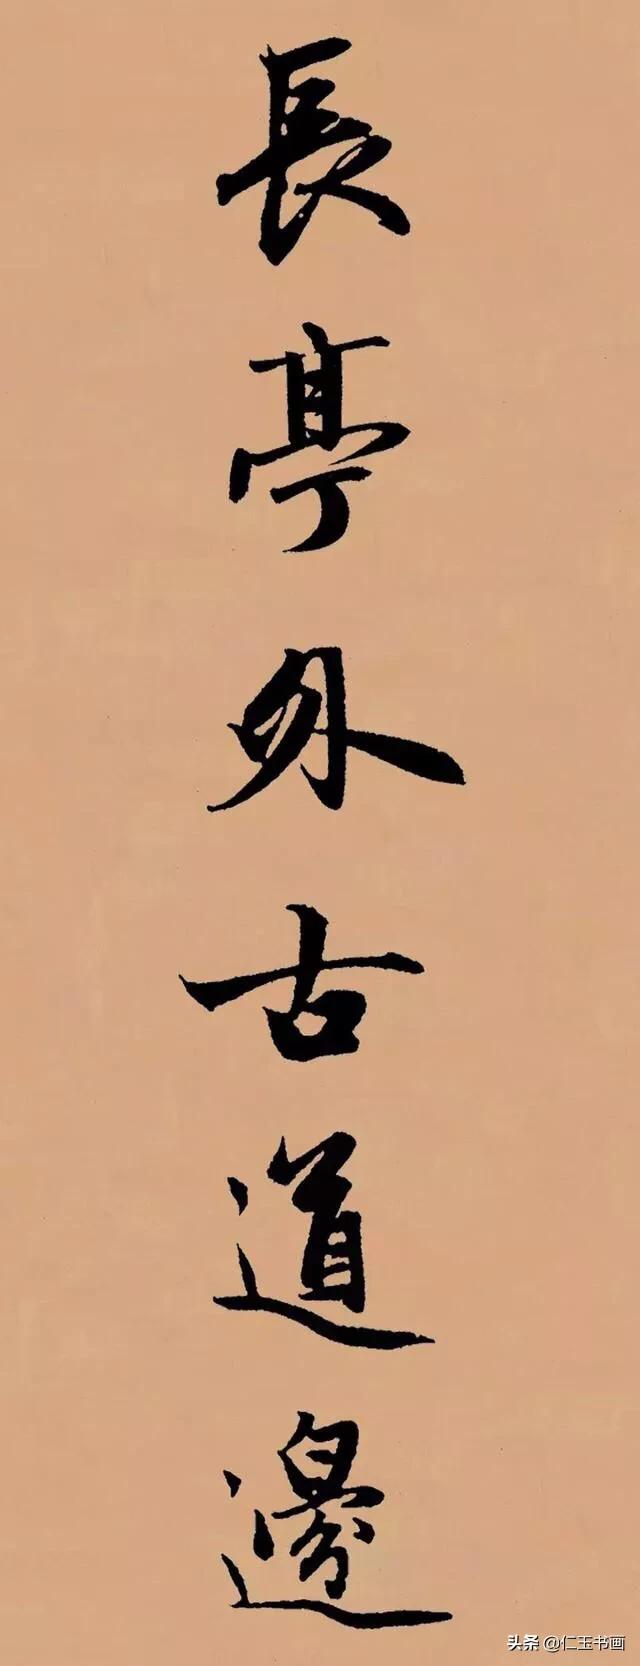 長亭外古道邊
头条 @仁玉书画